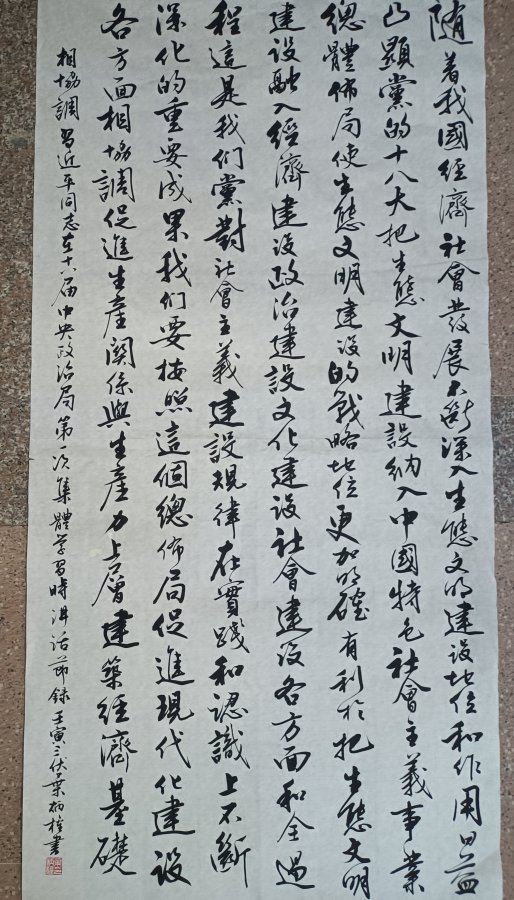 隨着我國經濟社會發展不斷深入生態文明建設地位和作用日益
凸顯黨的十八大把生態文明建設納入中國特色社會主義事業
總體佈局使生態文明建設的戰略地位更加明確有利於把生態文明
建設融入經濟建設政治建設文化建設社會建設各方面和全過
程這是我们黨對社會主義建設規律在實踐和認識上不斷
深化的重要成果我们要按照這個總佈局促進現代化建設
各方面相協調促進生産關係與生産力上層建築經濟基礎
相協調習近平同志在十八届中央政治局第一次集體学習時讲话節録壬寅三伏葉炳書